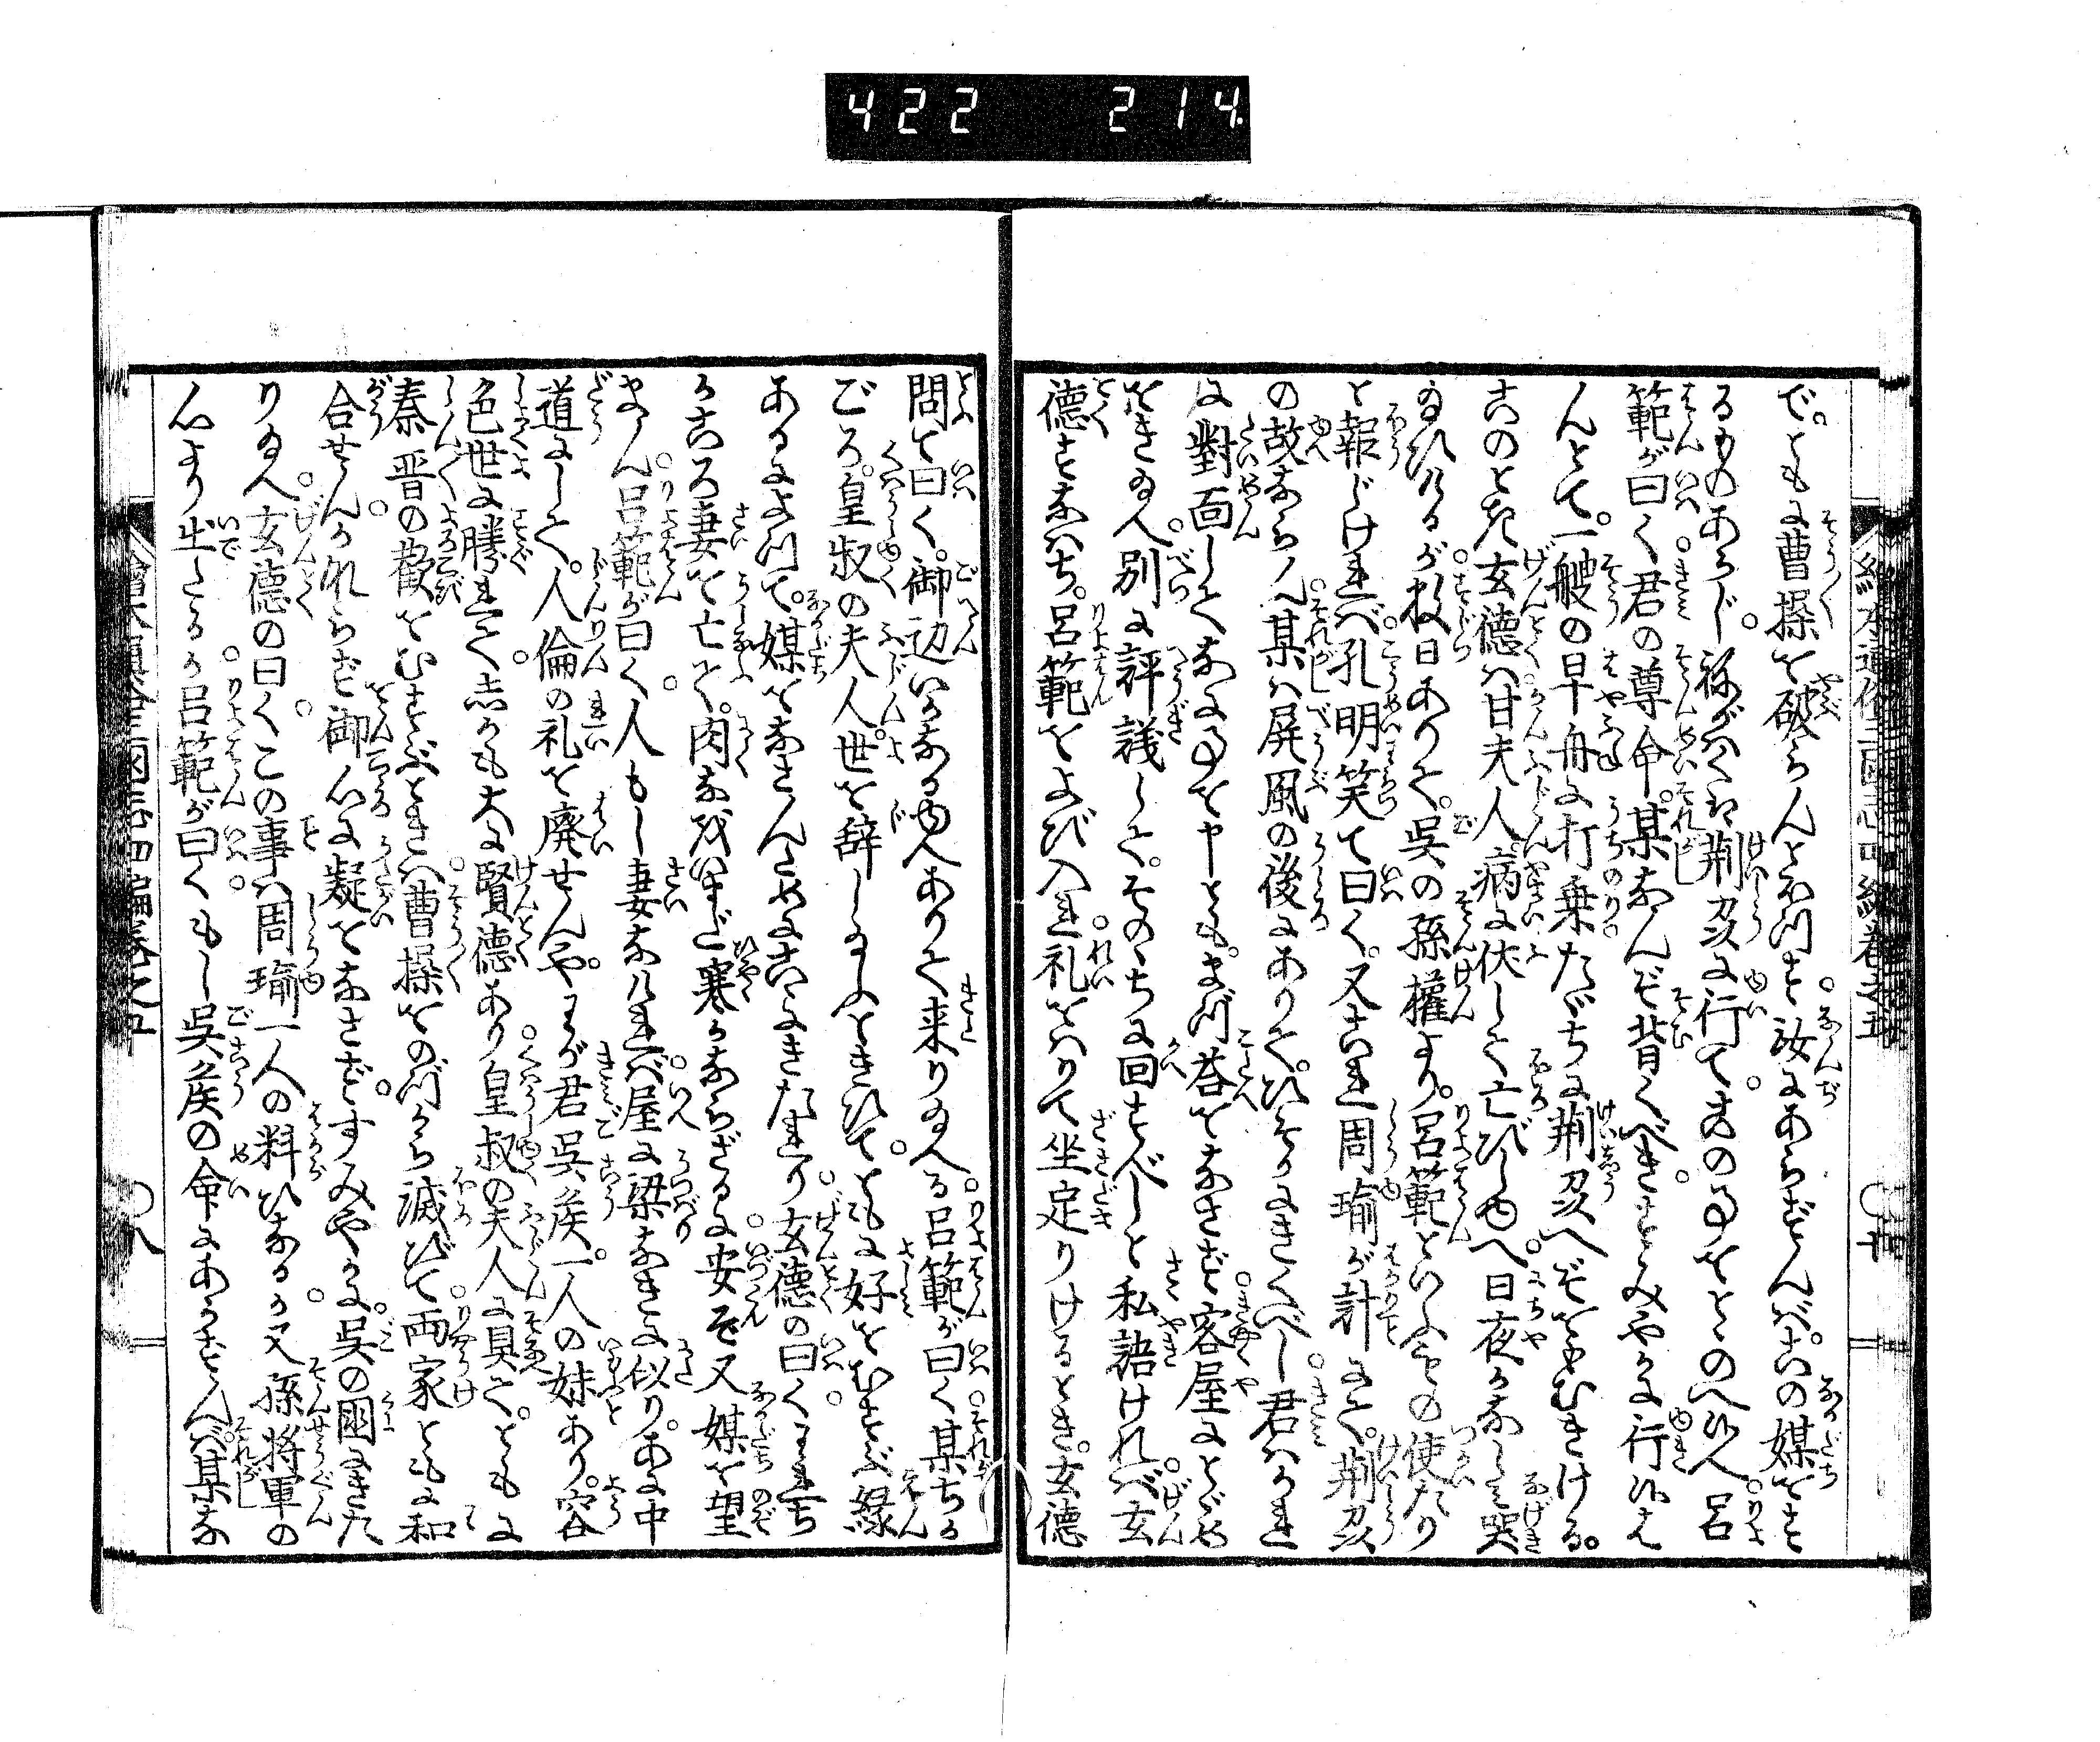 422 214.
繪本通俗三國志四編卷之五
で。ともに曹操を破らんとほつす。汝にあらずんば。この媒をす
るものあらじ。ねがはくは荊州に行て。このことをとゝのへ候へ。呂
範が曰く。君の尊命。某なんぞ背くべき。すみやかに行候は
んとて。一艘の早舟に打乗たゞちに荊州へぞをもむきける。
このとき玄德は甘夫人病に伏して亡びしゆへ。日夜かなしみ哭
ゐけるが。数日ありて。呉の孫權より。呂範といふもの使たり
と報じければ。孔明笑て曰く。又これ周瑜が計にて。荊州
の故ならん。某は屏風の後にありて。ひそかにきくべし。君はかれ
に對面してなにごとを申とも。まづ答をなさず。客屋にとゞめ
をき給へ。別に評議して。そのゝちに回すべしと私語ければ。玄
德すなはち。呂範をよび入れ。礼をはりて坐定りけるとき。玄德
問て曰く。御辺いかなるゆへありて来り給へる。呂範が曰く。某ちか
ごろ。皇叔の夫人。世を辞し給ふときひて。ともに好をむすぶ緣
あるによつて。媒をなさんためにこゝにきたれり。玄德の曰くわれち
かごろ妻を亡て。肉なほいまだ寒かならざるに安ぞ又媒を望
まん。呂範が曰く。人もし妻なければ。屋に梁なきに似り。あに中
道にして。人倫の礼を廃せんや。わが君呉侯。一人の妹あり。容
色世に勝れて。しかも大に賢德あり。皇叔の夫人に具て。ともに
秦晋の歡をむすぶときは。曹操をのづから滅びて。両家ともに和
合せん。かれらず御心に疑をなさず。すみやかに。呉の國にきた
り給へ。玄德の曰く。この事は周瑜一人の料ひなるか。又孫将軍の
心より出たるか。呂範が曰く。もし呉侯の命にあらずんば。某な
繪本通俗三國志四編卷之五
八